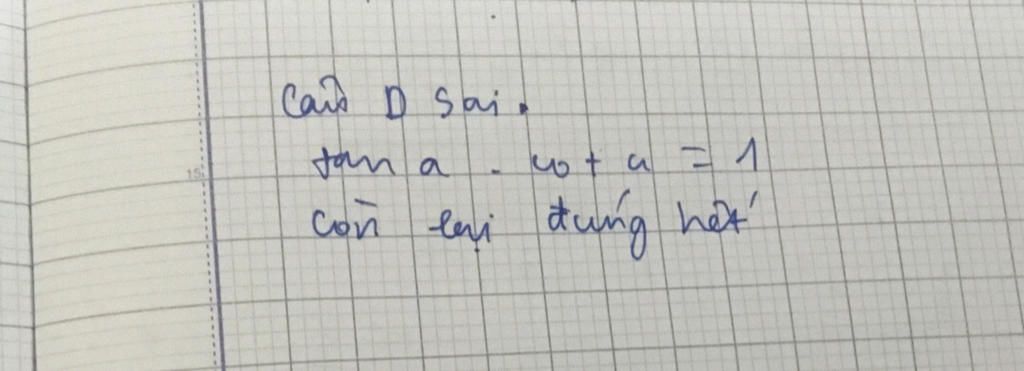 Câu D sai.
tan a . cot a = 1
còn lại đúng hết